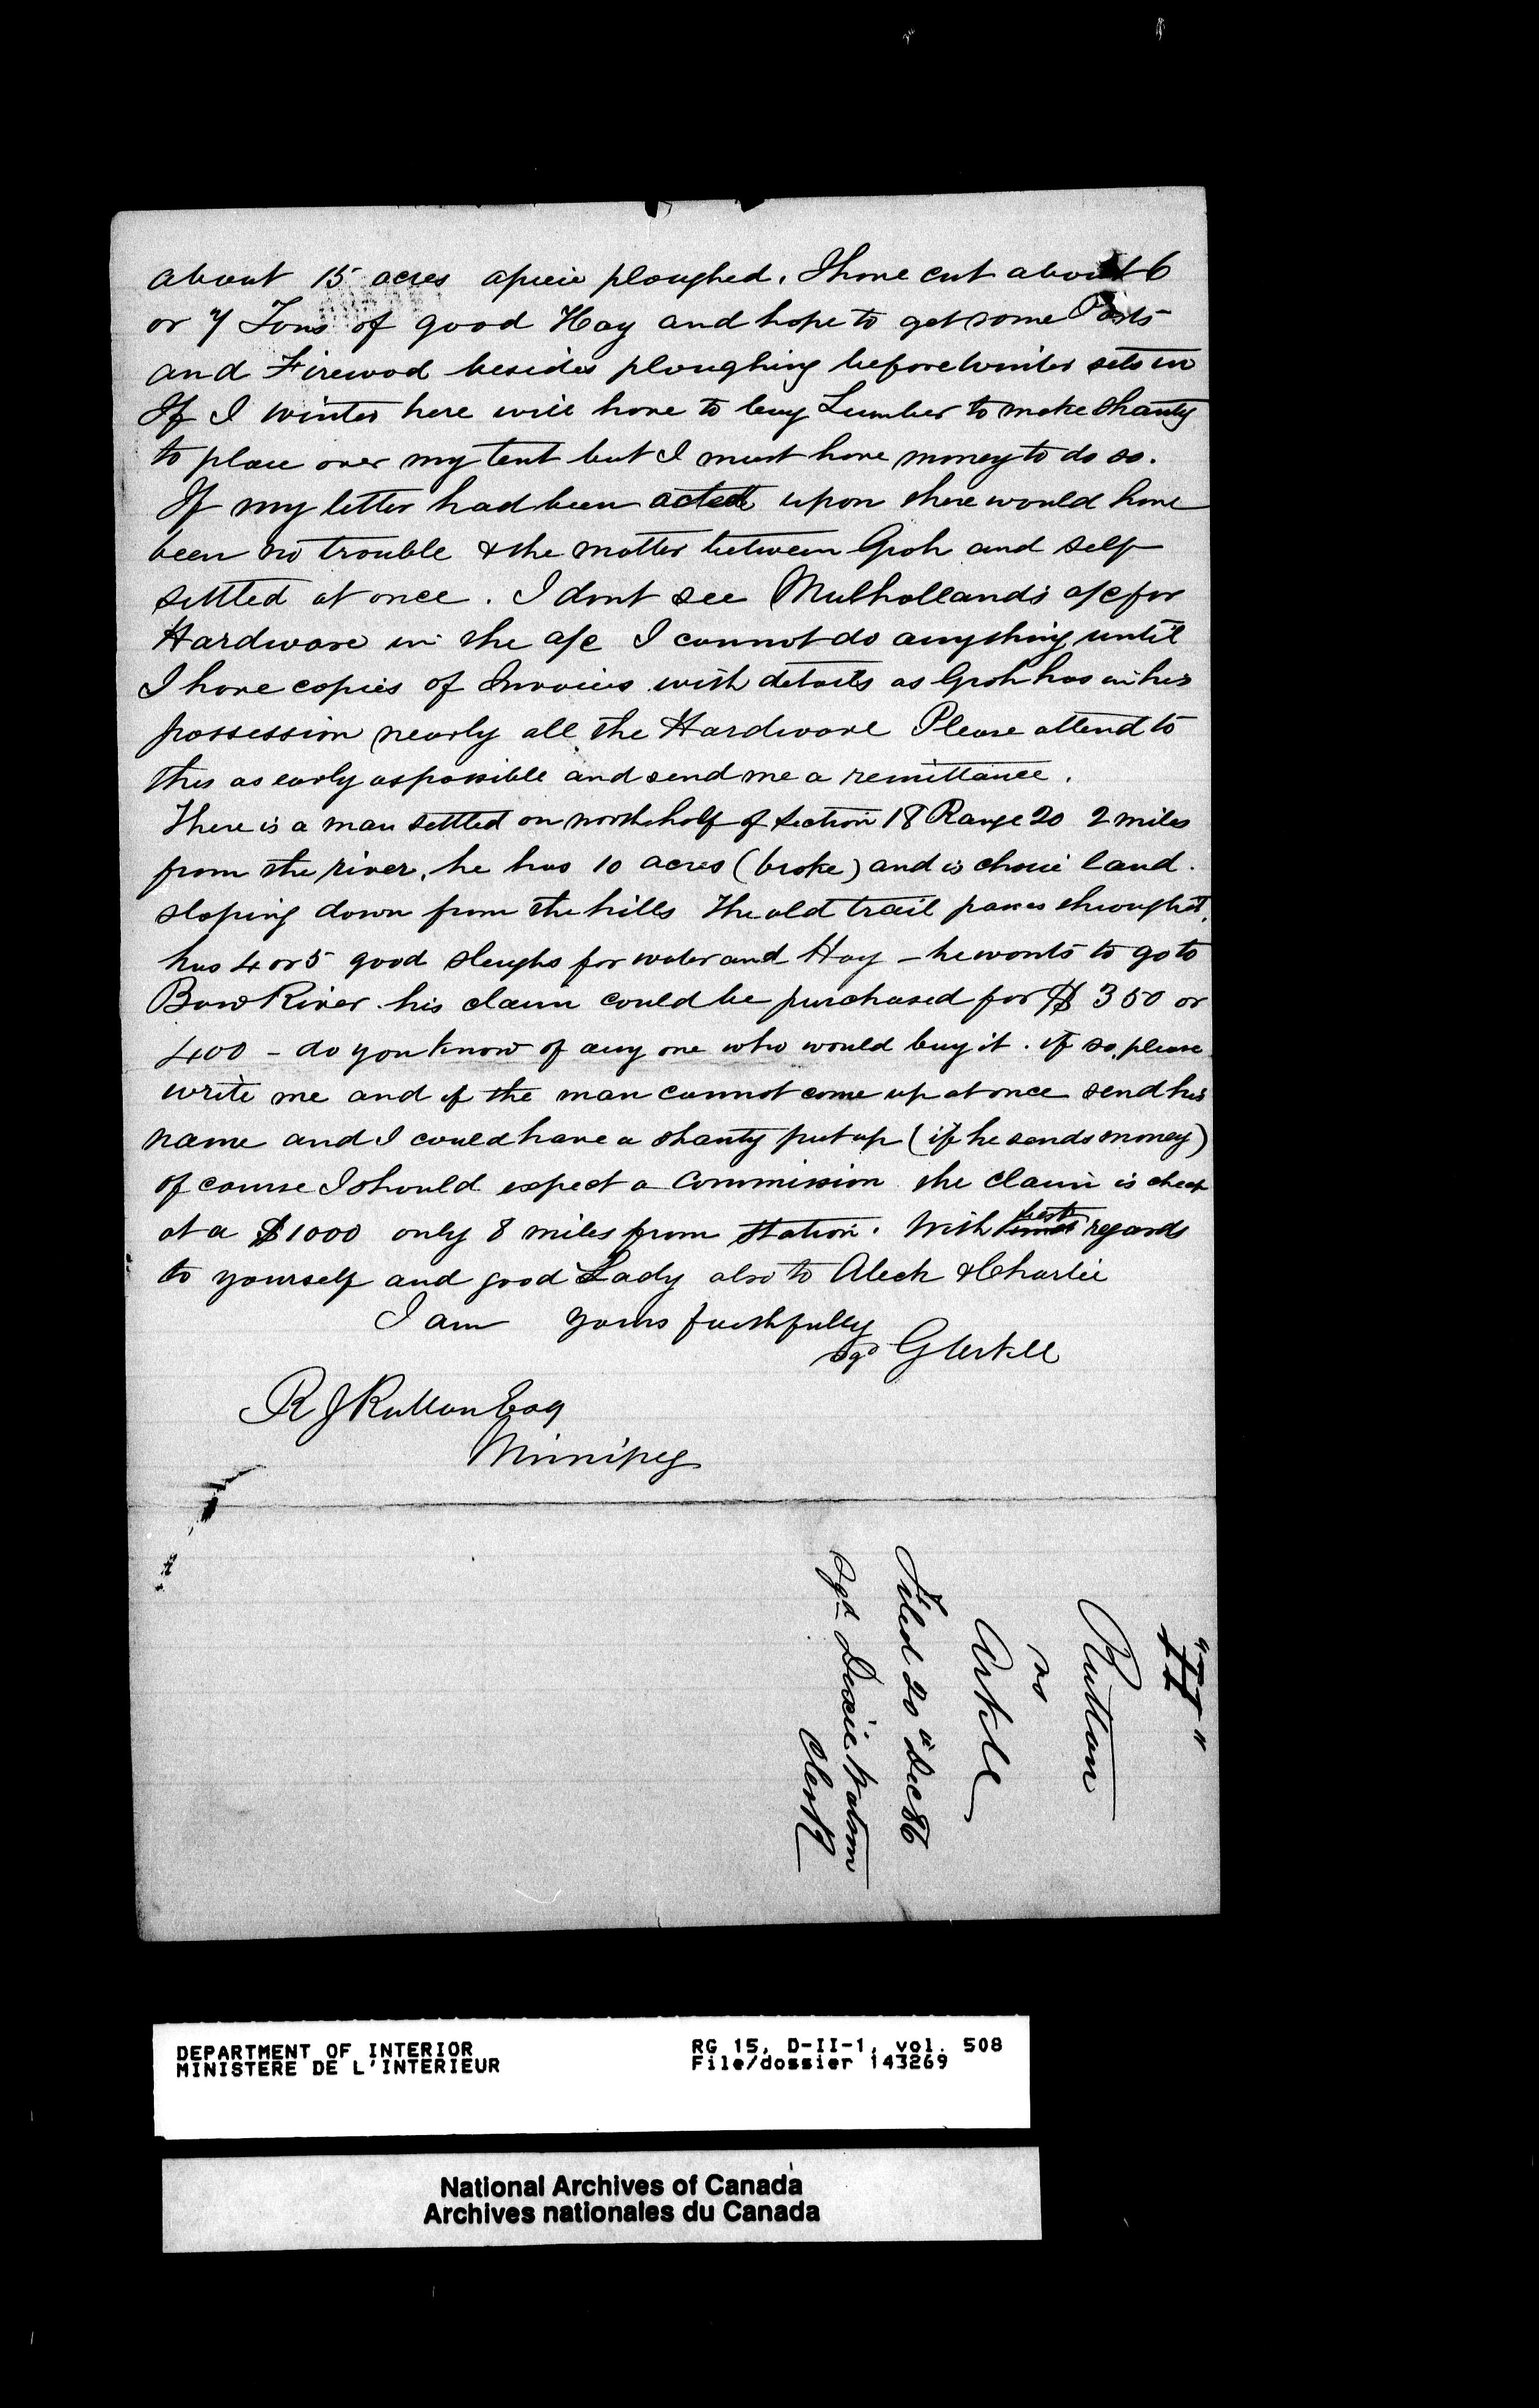 about 15 acres apiece ploughed. I have cut about 6
or 7 Tons of good Hay and hope to get some Posts
and Firewod besides ploughing before winter sets in
If I winter here will have to buy Lumber to make Shanty
to place over my tent but I must have money to do so.
If my letter had been acted upon there would have
been no trouble & the matter between Groh and self
settled at once. I dont see Mulholland's a/c for
Hardware in the a/c I cannot do anything until
I have copies of Invoices with details as Groh has in his
possession nearly all the Hardware Please attend to
this as early as possible and send me a remittance.
There is a man settled on north half of Section 18 Range 20 2 miles
from the river, he has 10 acres (broke) and is choice land.
sloping down from the hills The old trail passes through it.
has 4 or 5 good sleughs for water and Hay - he wants to go to
Bow River his claim could be purchased for $350 or
400 - do you know of any one who would buy it. if so, please
write me and if the man cannot come up at once send his
name and I could have a shanty put up (if he sends money)
of course I should expect a Commission the claim is cheap
at a $1000 only 8 miles from Station. With best regards
to yourself and good Lady also to Aleck & Charlie
I am yours faithfully
Sgd G Arkle
R J Ruttan Esq
Winnipeg
Ruttan
vs
Arkle
Filed 20th Dec 86
Sgd Dixie Watson
Clerk
DEPARTMENT OF INTERIOR RG 15, D-II-1, vol. 508
MINISTERE DE L'INTERIEUR File/dossier 143269
National Archives of Canada
Archives nationales du Canada